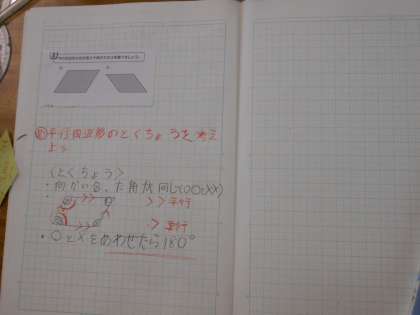 平行四辺形のとくちょうを考え
よう
〈とくちょう〉
・向かい合った角が同じ(○○と××)
平行
平行
・○と×をあわせたら180°